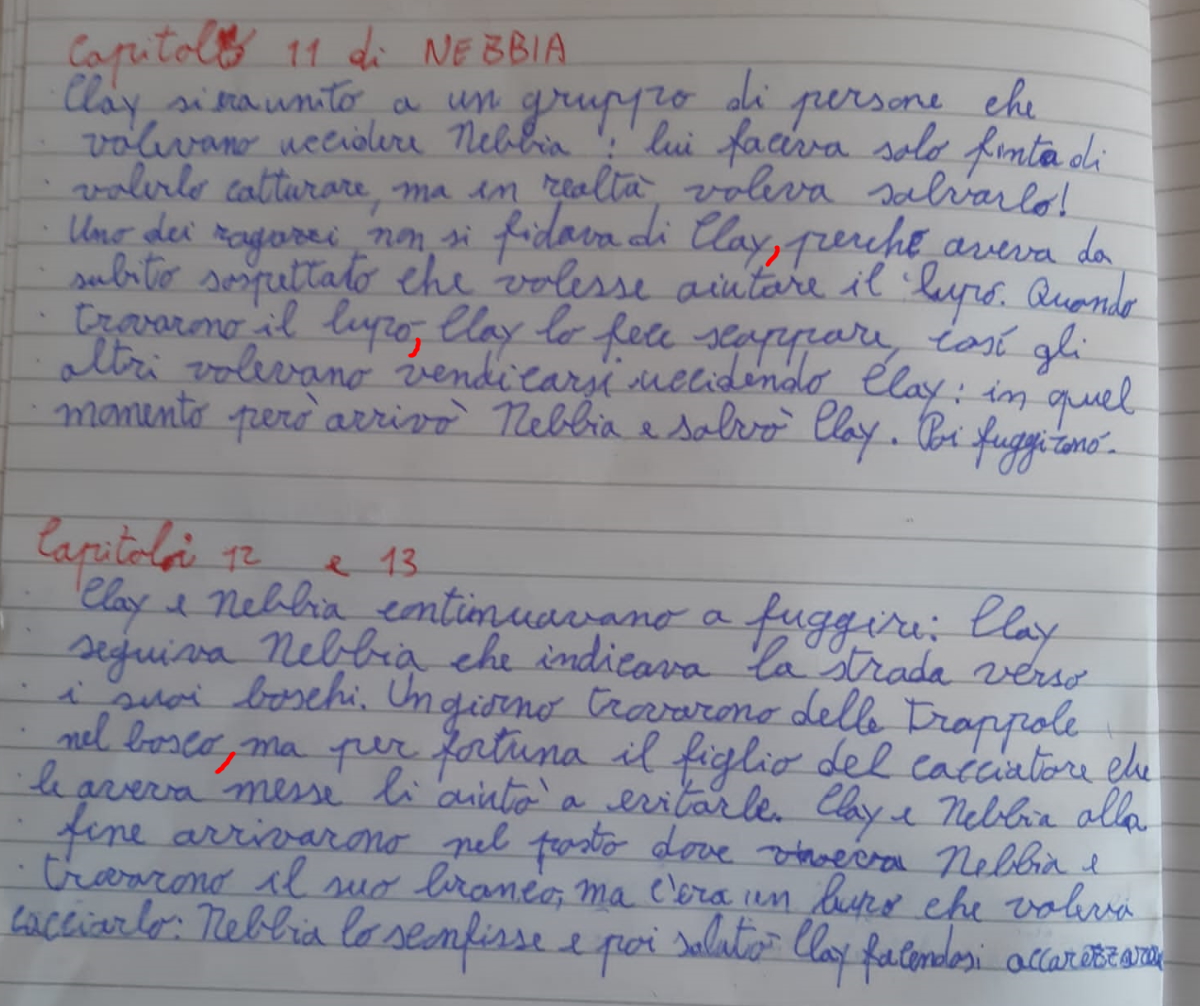 Capitolo 11 di NEBBIA
Clay si era unito a un gruppo di persone che
volevano uccidere Nebbia: lui faceva solo finta di
volerlo catturare, ma in realtà voleva salvarlo!
Uno dei ragazzi non si fidava di Clay, perchè aveva da
subito sospettato che volesse aiutare il lupo. Quando
trovarono il lupo, Clay lo fece scappare, così gli
altri volevano vendicarsi uccidendo Clay: in quel
momento però arrivò Nebbia e salvò Clay. Poi fuggirono.
Capitoli 12 e 13
Clay e Nebbia continuavano a fuggire: Clay
seguiva Nebbia che indicava la strada verso
i suoi boschi. Un giorno trovarono delle trappole
nel bosco, ma per fortuna il figlio del cacciatore che
le aveva messe li aiutò a evitarle. Clay e Nebbia alla
fine arrivarono nel posto dove viveva Nebbia e
trovarono il suo branco, ma c'era un lupo che voleva
cacciarlo: Nebbia lo sconfisse e poi salutò Clay facendosi accarezzare